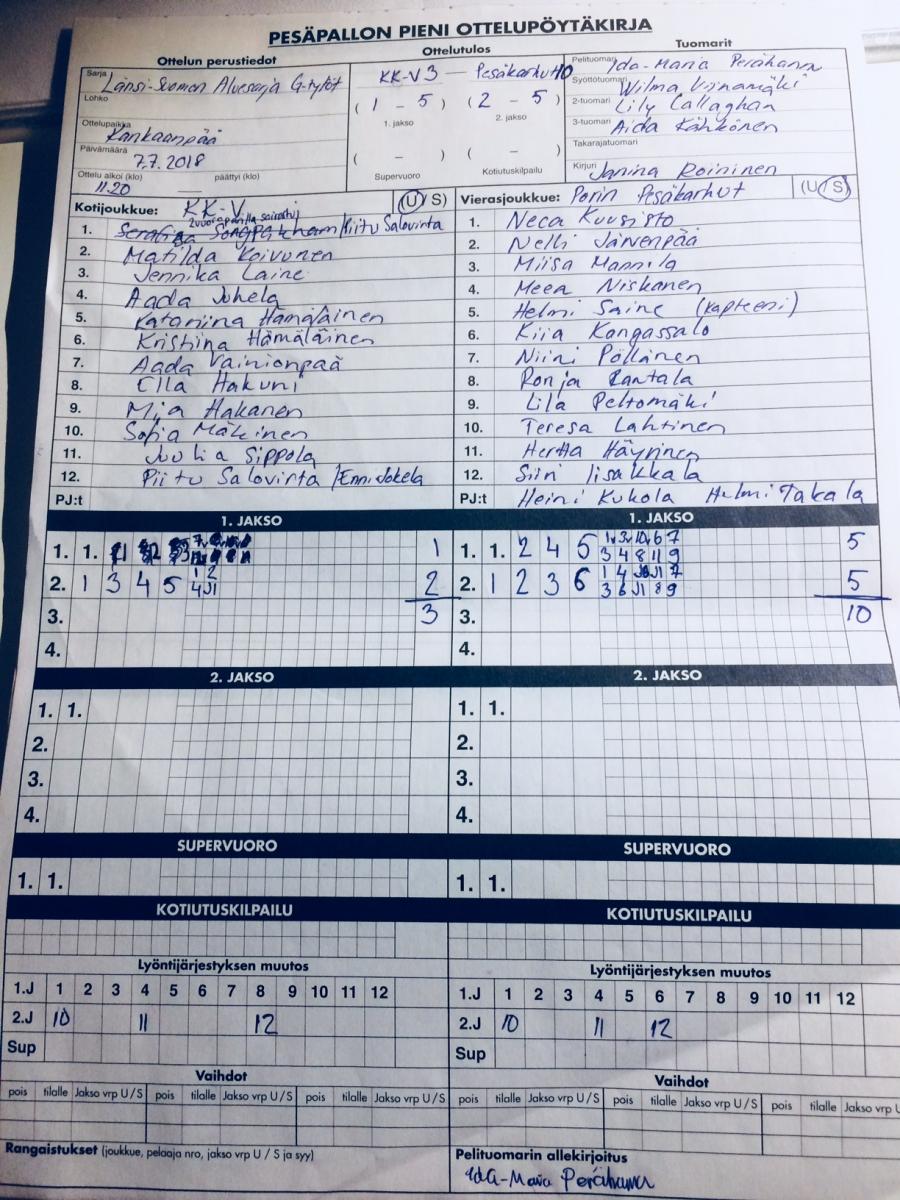 PESÄPALLON PIENI OTTELUPÖYTÄKIRJA
Ottelun perustiedot
Sarja Länsi-Suomen Aluesarja G-tytöt
Lohko
Ottelupaikka Kankaanpää
Päivämäärä 7.7.2018
Ottelu alkoi (klo) päättyi (klo)
11.20
Ottelutulos
KK-V3 — Pesäkarhut10
( 1 - 5 ) ( 2 - 5 )
1. jakso 2. jakso
( - ) ( - )
Supervuoro Kotiutuskilpailu
Tuomarit
Pelituomari Ida-Maria Perähannu
Syöttötuomari Wilma Viinamäki
2-tuomari Lily Callaghan
3-tuomari Aida Kähkönen
Takarajatuomari
Kirjuri Janina Roininen
Kotijoukkue: KK-V (U/S)
2vuoroparilla sairastui
1. Songpakham/Piitu Salovirta
2. Matilda Koivunen
3. Jennika Laine
4. Aada Juhela
5. Katariina Hämäläinen
6. Kristiina Hämäläinen
7. Aada Vainionpää
8. Ella Hakuni
9. Mia Hakanen
10. Sofia Mäkinen
11. Juulia Sippola
12. Piitu Salovirta /Enni Jokela
PJ:t
Vierasjoukkue: Porin Pesäkarhut (U/S)
1. Neea Kuusisto
2. Nelli Järvenpää
3. Miisa Mannila
4. Meea Niskanen
5. Helmi Saine (kapteeni)
6. Kiia Kangassalo
7. Niini Pöllänen
8. Ronja Rantala
9. Lila Peltomäki
10. Teresa Lahtinen
11. Hertta Häyrinen
12. Siiri Iisakkala
PJ:t Heini Kukola Helmi Takala
1. JAKSO
1. 1. 1
2. 1 3 4 5 1 2 2
4 11
3. 3
4.
1. JAKSO
1. 1. 2 4 5 6 7 5
3 4 8 11 9
2. 1 2 3 6 1 4 7 5
3 6 11 8 9
3. 10
4.
2. JAKSO
1. 1.
2.
3.
4.
2. JAKSO
1. 1.
2.
3.
4.
SUPERVUORO
1. 1.
SUPERVUORO
1. 1.
KOTIUTUSKILPAILU
KOTIUTUSKILPAILU
Lyöntijärjestyksen muutos
1.J 1 2 3 4 5 6 7 8 9 10 11 12
2.J 10 11 12
Sup
Lyöntijärjestyksen muutos
1.J 1 2 3 4 5 6 7 8 9 10 11 12
2.J 10 11 12
Sup
Vaihdot
pois tilalle Jakso vrp U / S pois tilalle Jakso vrp U / S pois tilalle Jakso vrp U / S
Vaihdot
pois tilalle Jakso vrp U / S pois tilalle Jakso vrp U / S pois tilalle Jakso vrp U
Rangaistukset (joukkue, pelaaja nro, jakso vrp U / S ja syy)
Pelituomarin allekirjoitus
Ida-Maria Perähannu